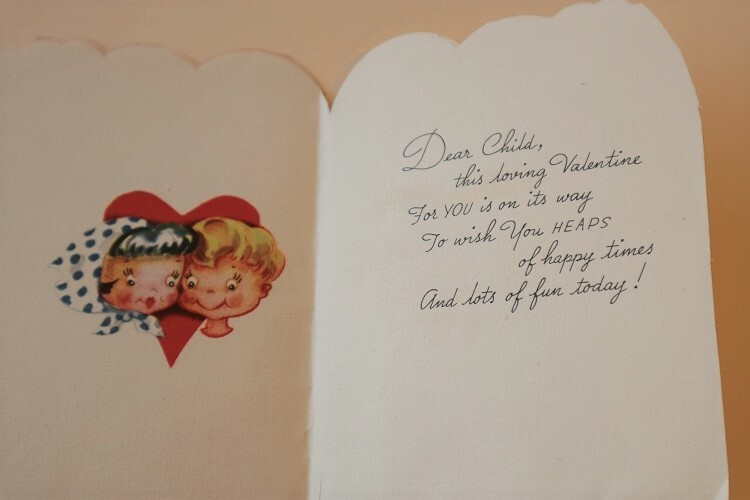 Dear Child,
this loving Valentine
For YOU is on its way
To wish You HEAPS
of happy times
And lots of fun today!